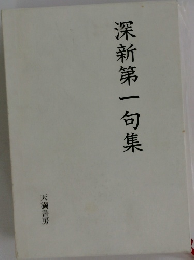 深新第一句集
天満書房